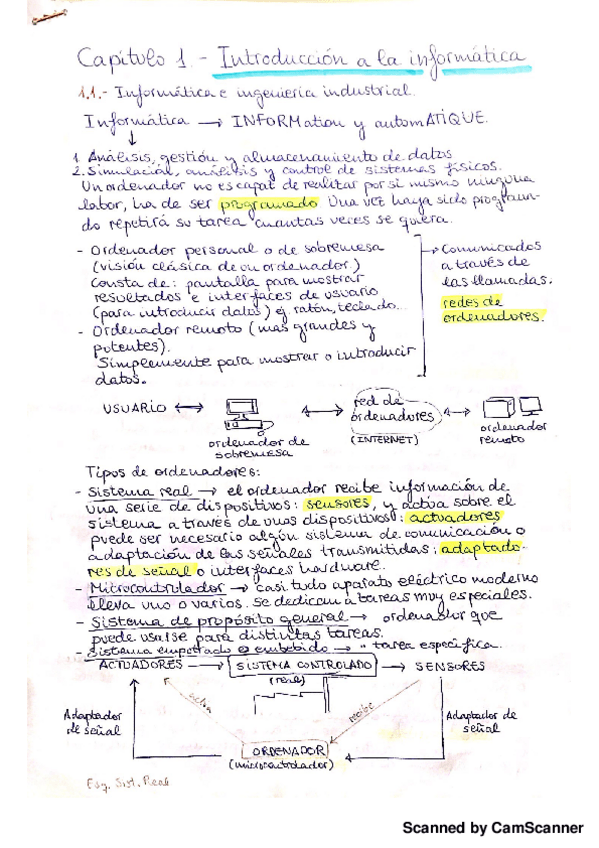 Capítulo 1.- Introducción a la informática
1.1.- Informática e ingeniería industrial.
Informática → INFORMation y automATIQUE.
↓
1. Análisis, gestión y almacenamiento de datos
2. Simulación, análisis y control de sistemas físicos.
Un ordenador no es capaz de realizar por si mismo ninguna
labor, ha de ser programado Una vez haya sido programan-
do repetirá su tarea cuantas veces se quiera.
- Ordenador personal o de sobremesa
(visión clásica de un ordenador)
Consta de: pantalla para mostrar
resultados e interfaces de usuario
(para introducir datos) ej. ratón, teclado...
- Ordenador remoto (mas grandes y
potentes).
Simplemente para mostrar o introducir
datos.
→ Comunicados
a través de
las llamadas.
redes de
ordenadores.
USUARIO ↔ ordenador de sobremesa ↔ red de ordenadores (INTERNET) ↔ ordenador remoto
Tipos de ordenadores:
- Sistema real → el ordenador recibe información de
una serie de dispositivos: sensores, y actua sobre el
sistema a través de unos dispositivos: actuadores
puede ser necesario algún sistema de comunicación o
adaptación de las señales transmitidas: adaptado-
res de señal o interfaces hardware.
- Microcontrolador → casi tudo aparato eléctrico moderno
lleva uno o varios. Se dedican a tareas muy especiales.
- Sistema de propósito general → ordenador que
puede usarse para distintas tareas.
- Sistema empotrado o embebido → " tarea especifica.
ACTUADORES → SISTEMA CONTROLADO → SENSORES
(real)
actua
recibe
Adaptador
de señal
Adaptador de
señal
ORDENADOR
(microcontrolador)
Esq. Sist. Real
Scanned by CamScanner